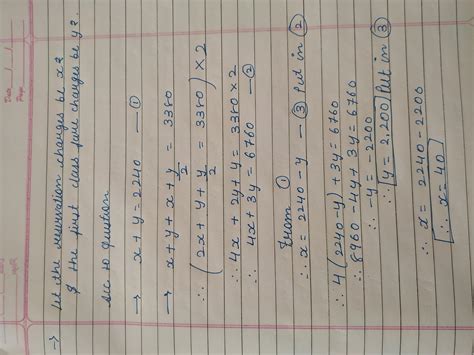 → Let the reservation changes be x?
& the first class fare changes be y?
Acc to question
→ x + y = 2240 — ①
→ x + y + x + y/2 = 3380
∴ (2x + y + y/2 = 3380) × 2
∴ 4x + 2y + y = 3380 × 2
∴ 4x + 3y = 6760 — ②
From ①
∴ x = 2240 - y — ③ Put in ②
∴ 4(2240 - y) + 3y = 6760
∴ 8960 - 4y + 3y = 6760
∴ -y = -2200
∴ y = 2,200 Put in ③
∴ x = 2240 - 2200
∴ x = 40
Date
Page